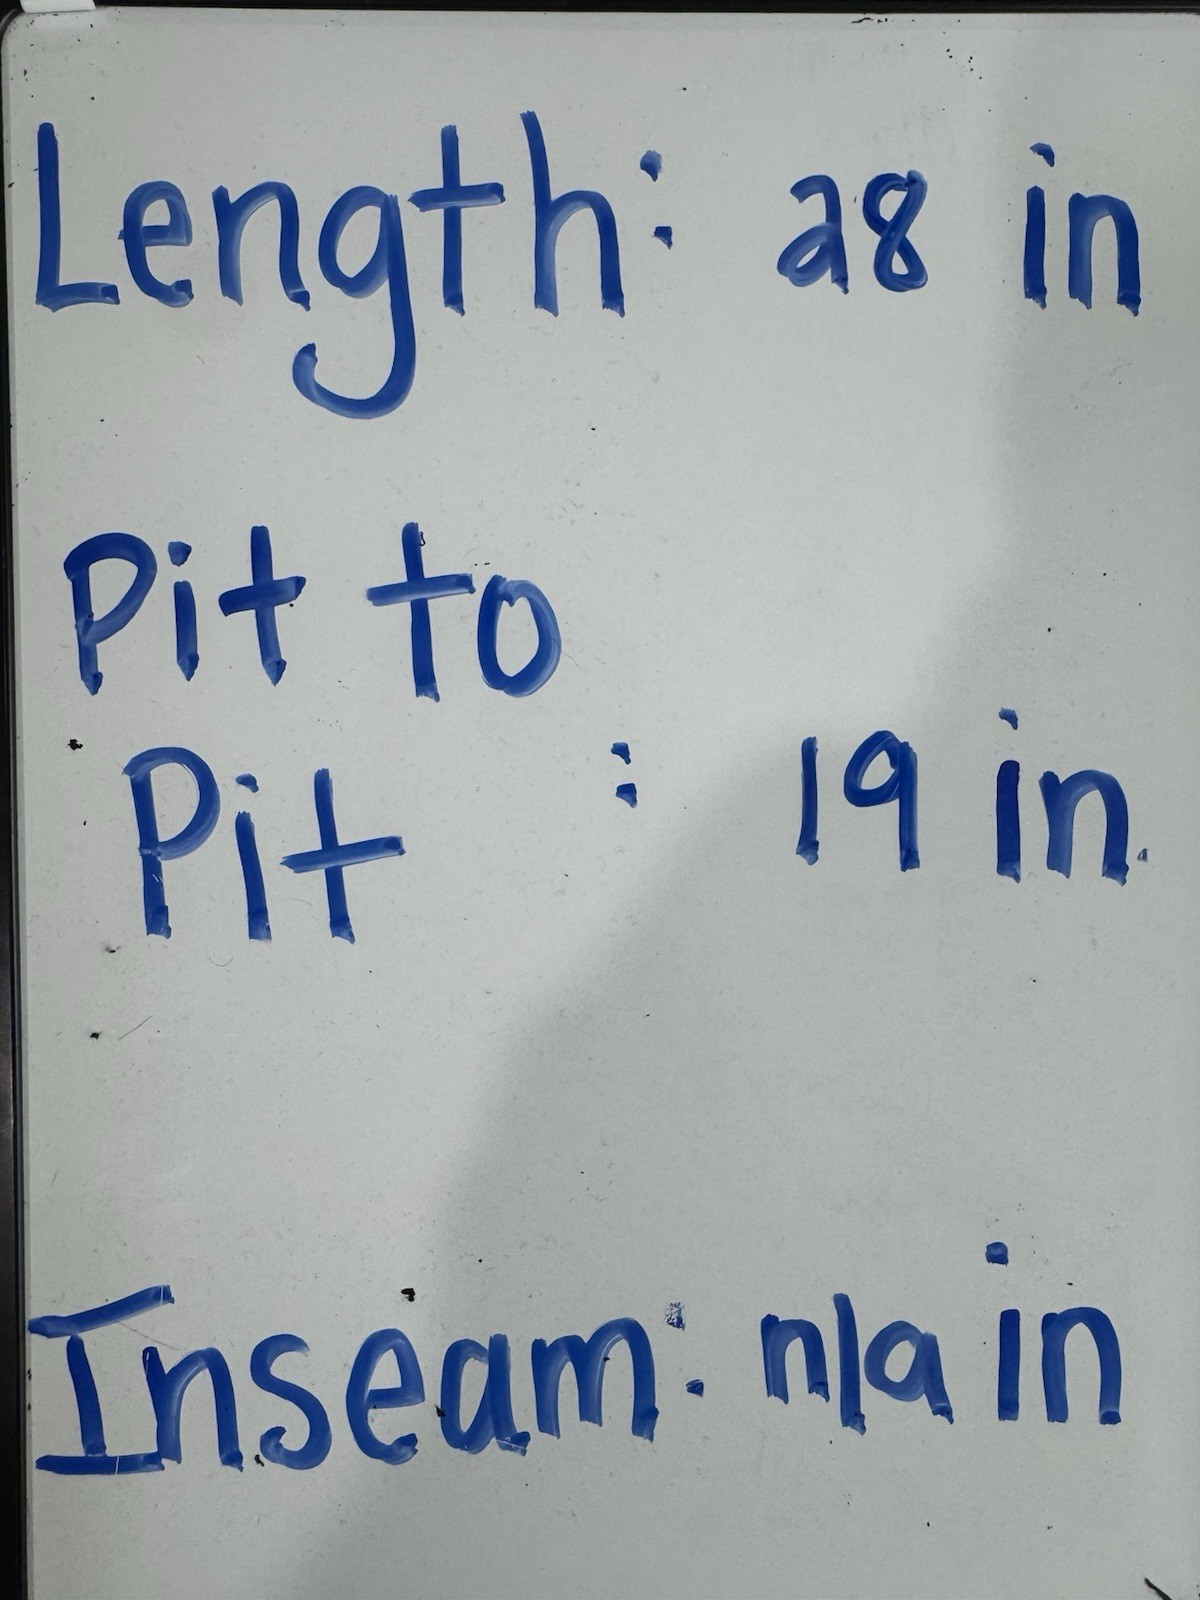 Length: 28 in
Pit to
Pit : 19 in
Inseam: n/a in